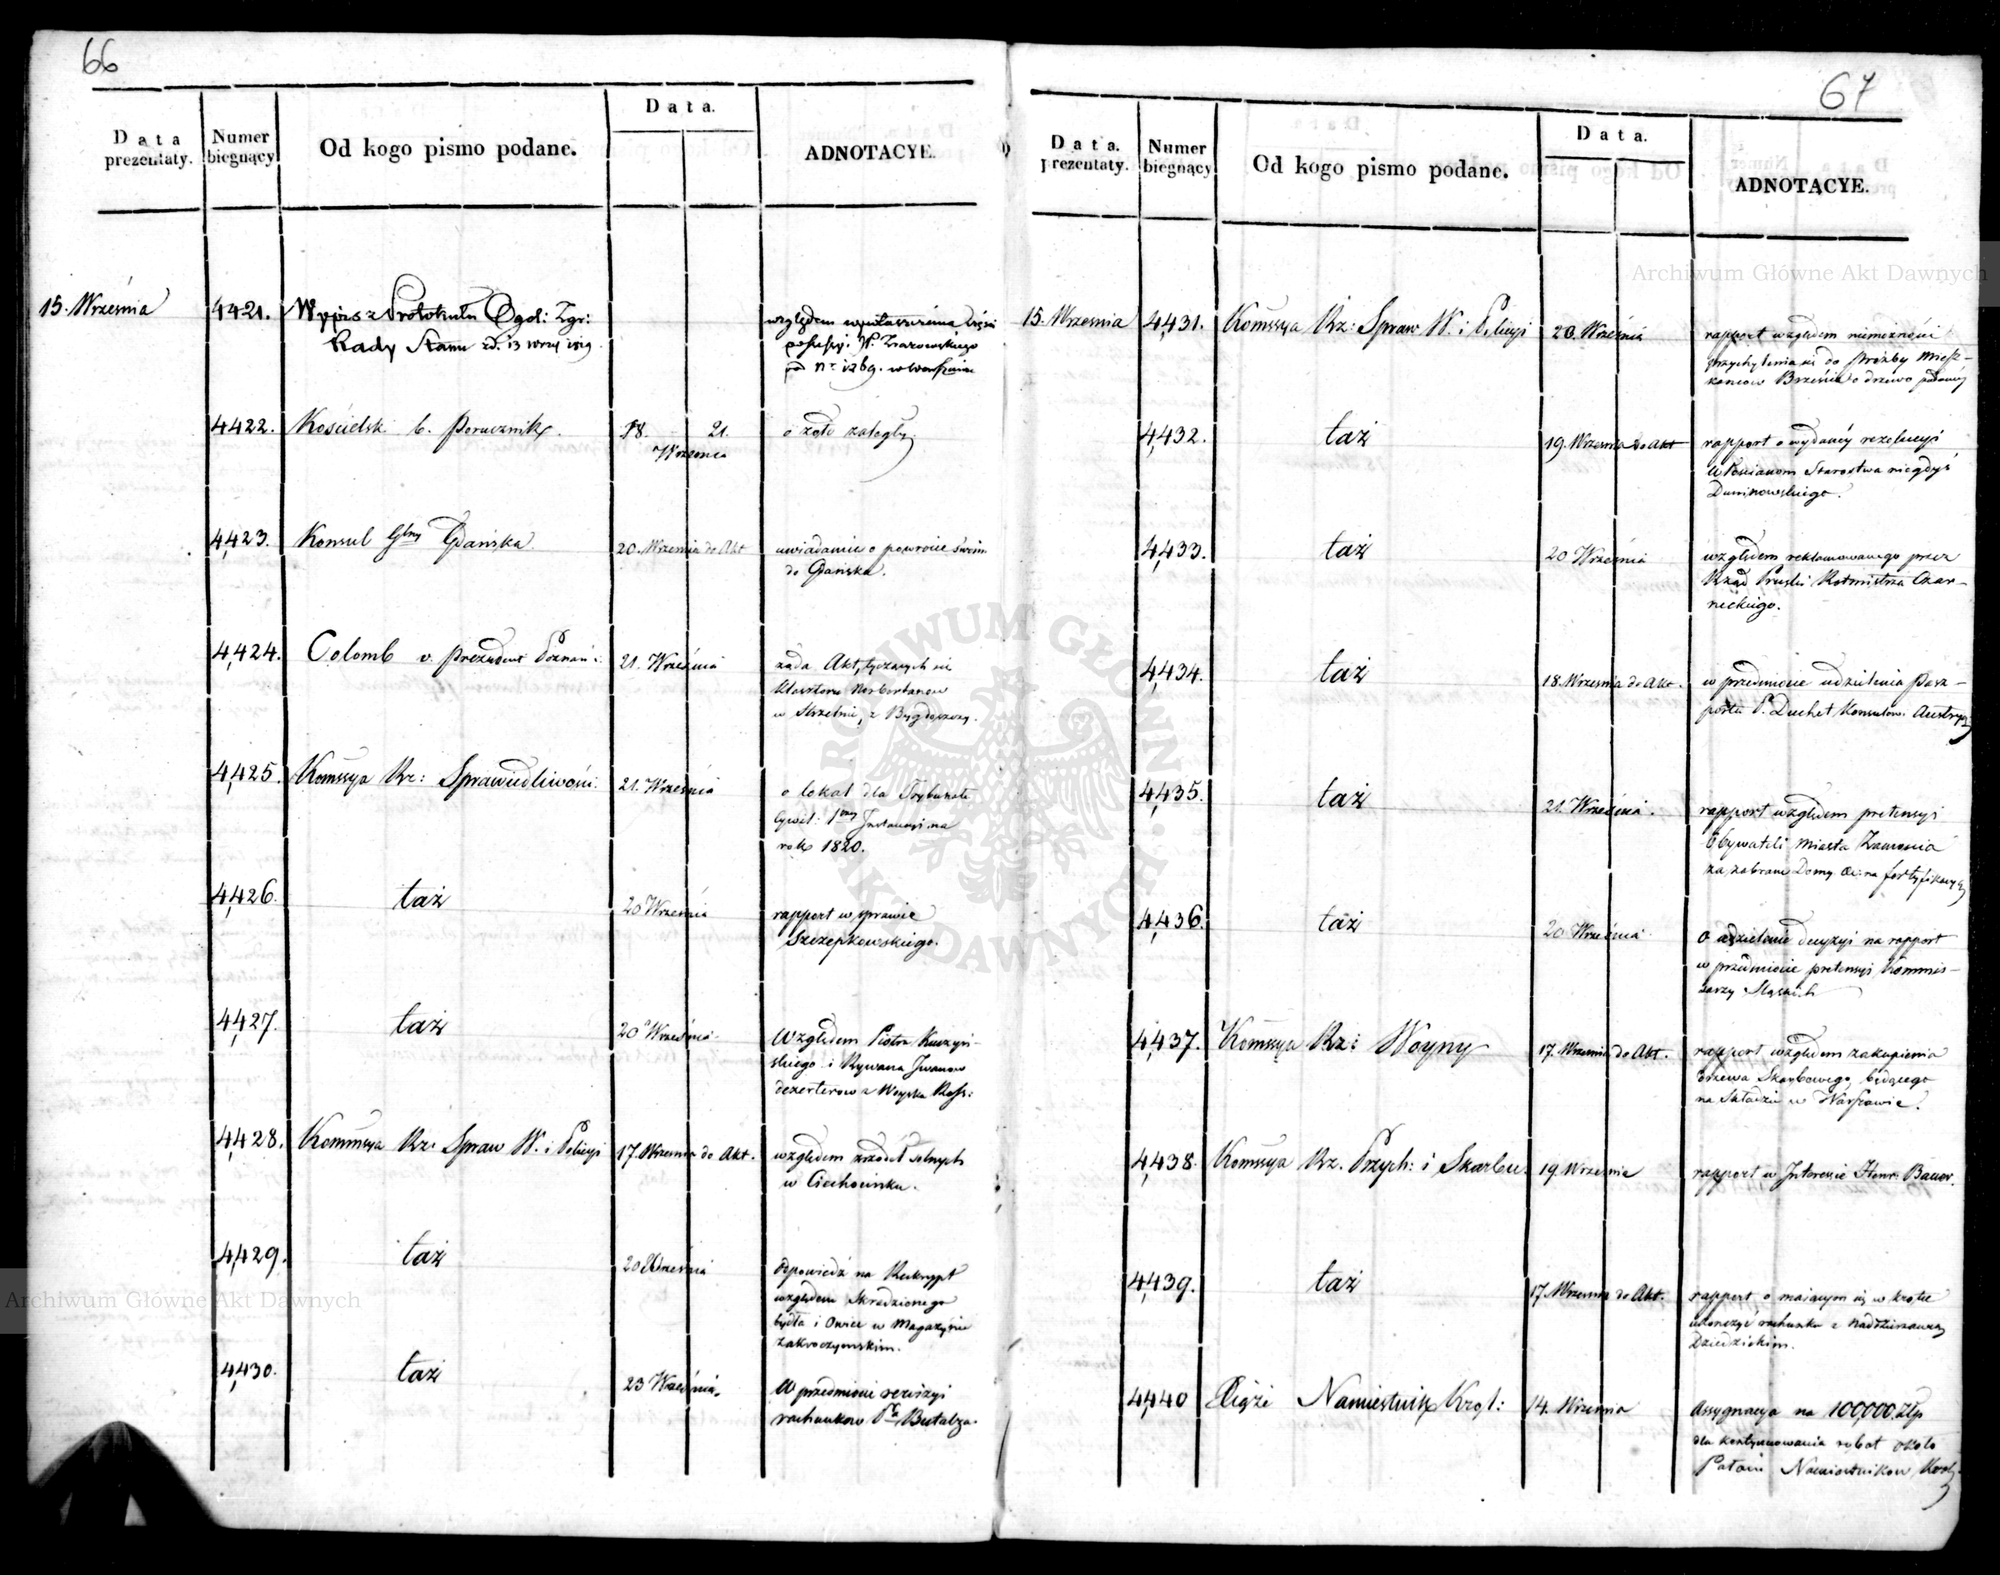 66
Data prezentaty. Numer biegnący Od kogo pismo podane. Data. ADNOTACYE.
15. Września 4421. Wypis z Protokułu Ogól: Zgr:
Rady Stanu
względem
W.
4422. b. Porucznik 18. 21.
Września
o zaległy
4423. Konsul Gdańska 20. Września do Akt uwiadamia o powrocie
do Gdańska.
4424. Colomb v. Prezydent Poznań: 21. Września żąda Akt tyczących się
Klasztoru Norbertanów
w Strzelnie, z Bydgoszczy.
4425. Komssya Rz: Sprawiedliwości 21. Września o lokal dla Trybunału
Cywil: 1 Instancyi na
rok 1820.
4426. taż 20 Września rapport w sprawie
Szczepkowskiego.
4427. taż 20 Września Względem Piotra Kuczyń-
skiego i Iwanow
dezerterow z Woyska Ross:
4428. Kommssya Rz: Spraw W. i Policyi 17. Września do Akt. względem zrzodeł solnych
w Ciechocinku.
4429. taż 20 Września odpowiedź na Reskrypt
względem Skradzionego
i Owies w Magazynie
Zakroczymskim.
4430. taż 23 Września. W przedmiocie rewizyi
rachunkow
67
Data. prezentaty. Numer biegnący Od kogo pismo podane. Data. ADNOTACYE.
15. Września 4431. Komssya Rz: Spraw W. i Policyi 20. Września rapport względem niemożności
przychylenia się do prożby Miesz-
kancow Brześcia o drzewo
4432. taż 19. Września do Akt rapport o wydaney rezolucyi
Włościanom Starostwa niegdyś
Duninowskiego.
4433. taż 20 Września względem reklamowanego przez
Rząd Pruski Rotmistrza Czar-
neckiego.
4434. taż 18. Września do Akt. w przedmiocie udzielenia Pasz-
portu P. Duchet Konsulow. Austryi
4435. taż 21. Września. rapport względem pretensyi
Obywateli Miasta Zamościa
za zabrane Domy na fortyfikacyą
4436. taż 20 Września O udzielenie decyzyi na rapport
w przedmiocie pretensyi Kommis-
sarzy
4437. Komssya Rz: Woyny 17. Września do Akt. rapport względem zakupienia
Drzewa Skarbowego, będącego
na Składzie w Warszawie.
4438. Komssya Rz. Przych: i Skarbu 19. Września rapport w Interessie Henr: Bauer.
4439. taż 17. Września do Akt. rapport o maiącym się w krotce
ukończyć rachunku z Naddzierżawcą
Dziedzickim.
4440 Xiąże Namiestnik Krol: 14. Września Assygnacya na 100,000. Złp
dla kontynuowania robot około
Pałacu Namiestnikow Krol:
Archiwum Główne Akt Dawnych
Archiwum Główne Akt Dawnych
ARCHIWUM GŁÓWNE AKT DAWNYCH